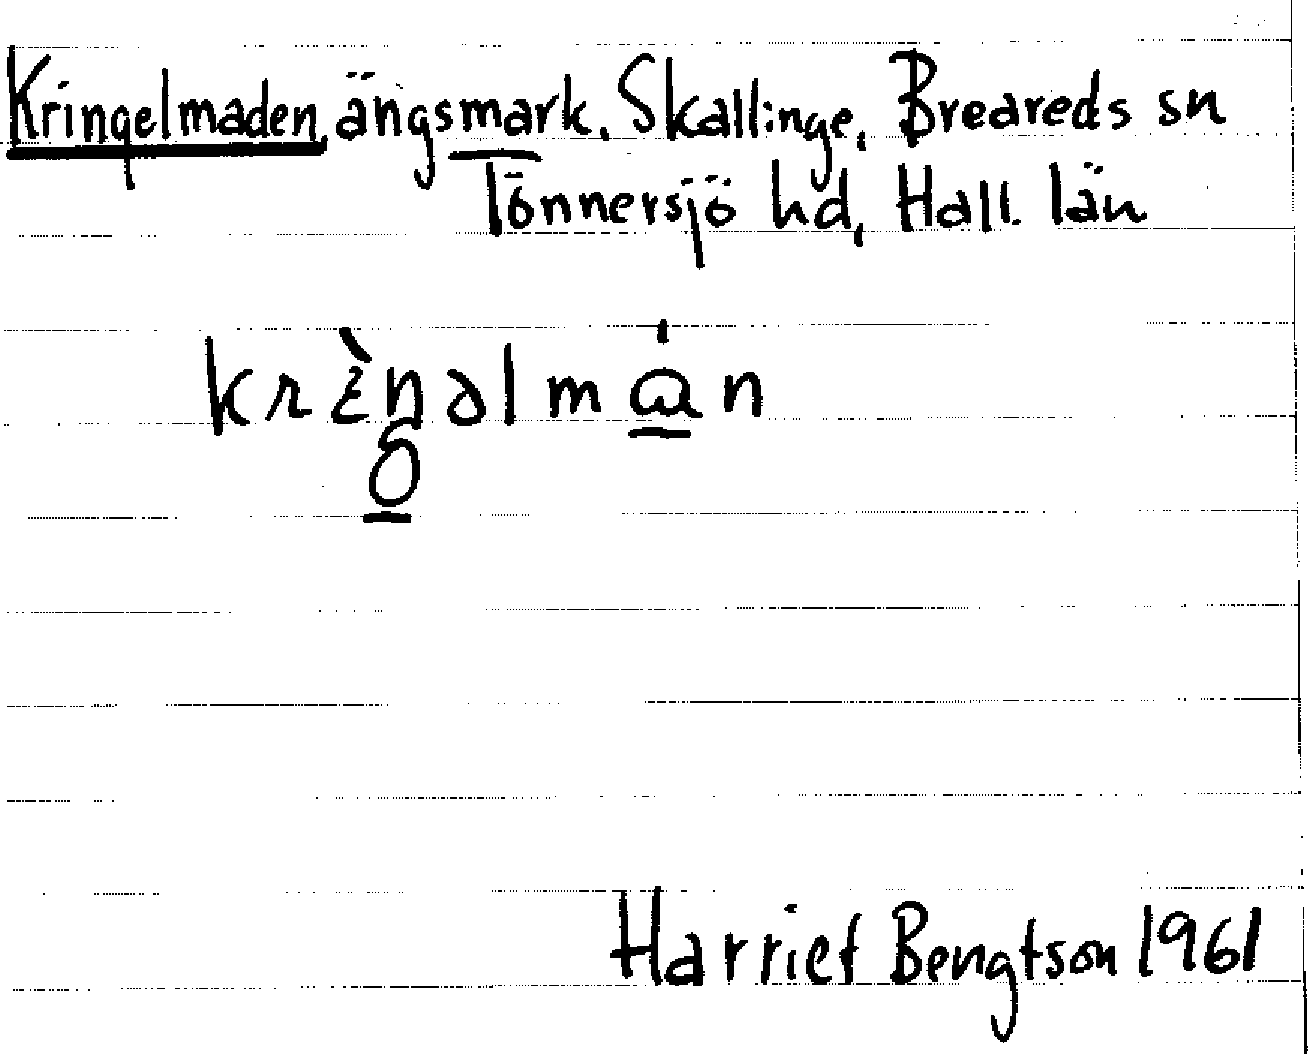 Kringelmaden, ängsmark. Skallinge, Breareds sn
Tönnersjö hd, Hall. län
Harriet Bengtson 1961